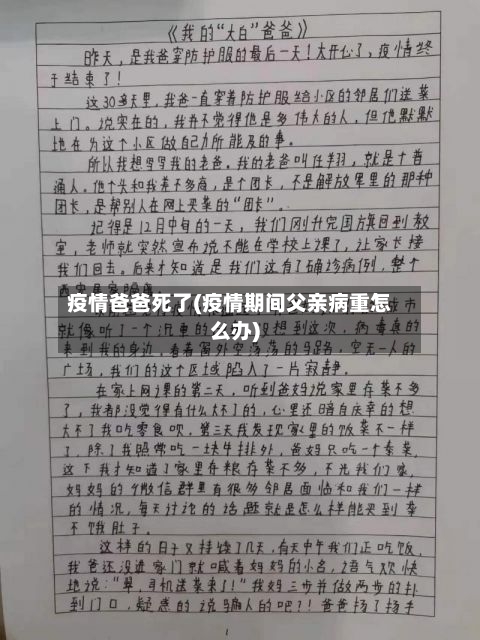 《我的“大白”爸爸》
昨天，是我爸穿防护服的最后一天！太开心了，疫情终
于结束了！
这30多天里，我爸一直穿着防护服给小区的邻居们送菜
上门。说实在的，我并不觉得他是多伟大的人，但他默默
地在为这个小区做自己力所能及的事。
所以我想写写我的老爸。我的老爸叫任羿，就是个普
通人。他个头和我差不多高，是个团长，不是解放军里的那种
团长，是帮别人在网上买菜的“团长”。
记得是12月中旬的一天，我们刚升完国旗回到教
室，老师就突然宣布说不能在学校上课了，让家长接
我们回去。后来才知道是我们这有了确诊病例，整个
疫情爸爸死了(疫情期间父亲病重怎
么办)
城市
就像听了一个
想到这次，病毒真的
来到我的身边，看着窗外空荡荡的马路，空无一人的
广场，我们的这个区域陷入了一片寂静。
在家上网课的第二天，听到爸妈说家里存菜不多
了，我都没觉得有什么大不了的，心里还暗自庆幸的想
大不了我吃零食呗，第三天我发现家里的饭菜不一样
了，除了我照常吃一块牛排外，爸妈只吃一个素菜，
这下我才知道了家里存粮存菜不多，不光我们家，
妈妈的个微信群里有很多邻居面临和我们一样
的情况，每天讨论的话题就是怎么样能买到菜
不饿肚子。
这样的日子又持续了几天，有天中午我们正吃饭，
我爸还没进家门就喊着妈妈的小名，语气欢快
地说：“翠，司机送菜来了！”我妈三步并做两步的扑
到门口，疑惑的说骗人的吧？！爸爸扬了扬手
1